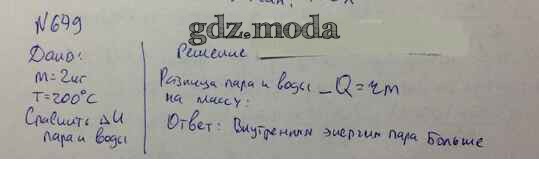 N649
gdz.moda
Дано:
m=2кг
T=200°C
Сравнить ΔU
пара и воды
Решение
Разница пара и воды _ Q=rm
на массу:
Ответ: Внутренняя энергия пара больше